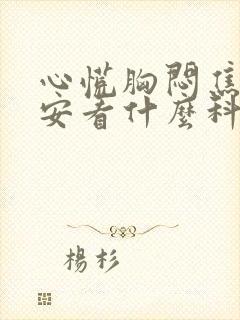 心慌胸悶焦
安看什麼科
楊杉